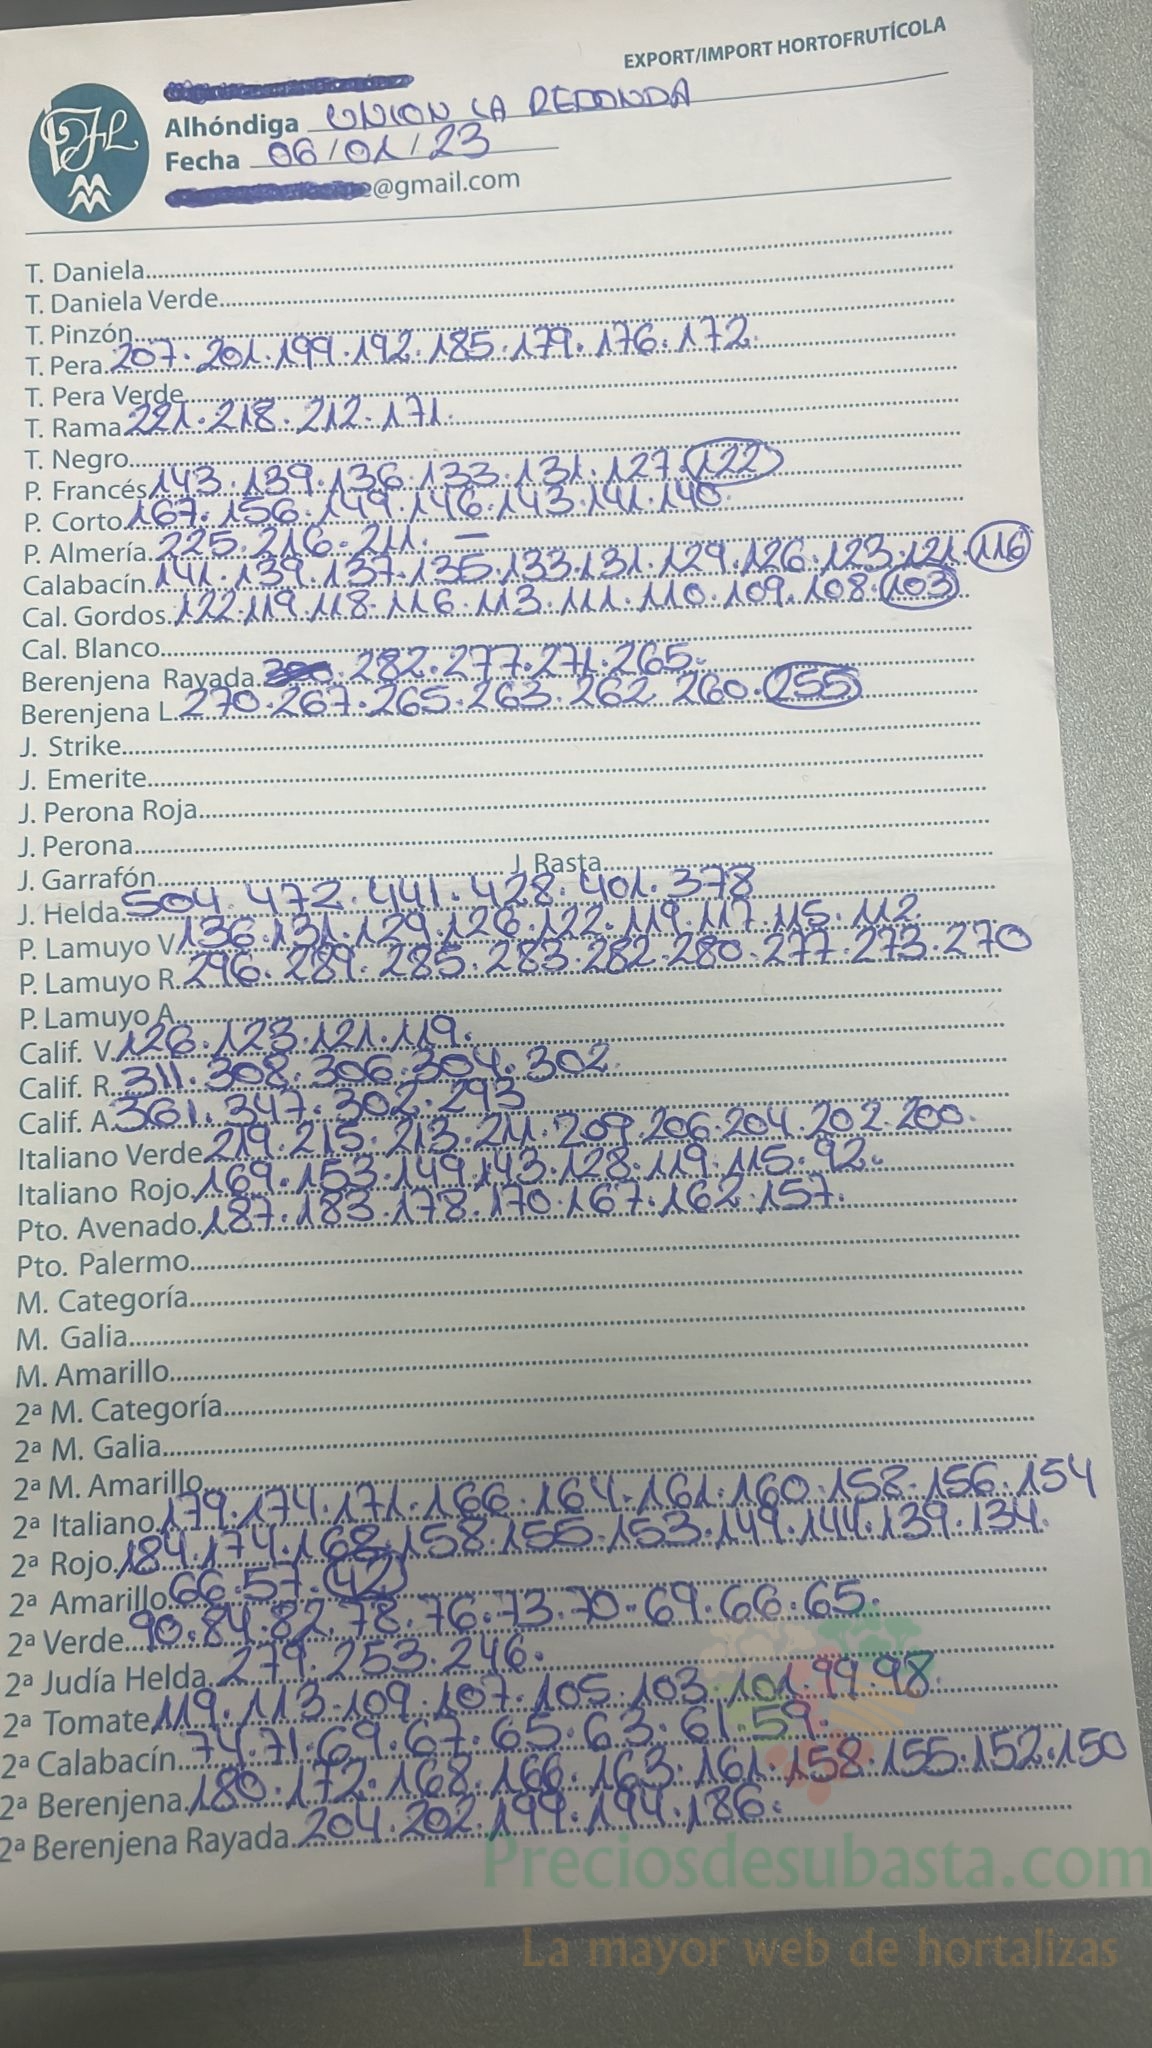 EXPORT/IMPORT HORTOFRUTÍCOLA
Alhóndiga UNION LA REDONDA
Fecha 06/01/23
@gmail.com
T. Daniela
T. Daniela Verde
T. Pinzón
T. Pera 207. 201. 199. 192. 185. 179. 176. 172.
T. Pera Verde
T. Rama 221. 218. 212. 171.
T. Negro
P. Francés 143. 139. 136. 133. 131. 127. 122
P. Corto 167. 156. 149. 146. 143. 141. 140.
P. Almería 225. 216. 211. —
Calabacín 141. 139. 137. 135. 133. 131. 129. 126. 123. 121. 116
Cal. Gordos 122. 119. 118. 116. 113. 111. 110. 109. 108. 103
Cal. Blanco
Berenjena Rayada 282. 277. 271. 265.
Berenjena L. 270. 267. 265. 263. 262 260. 255
J. Strike
J. Emerite
J. Perona Roja
J. Perona
J. Garrafón J. Rasta
J. Helda 504. 472. 441. 428. 401. 378
P. Lamuyo V. 136. 131. 129. 126. 122. 119. 117. 115. 112
P. Lamuyo R. 296. 289. 285. 283. 282. 280. 277. 273. 270
P. Lamuyo A.
Calif. V. 126. 123. 121. 119.
Calif. R. 311. 308. 306. 304. 302.
Calif. A. 361. 347. 302. 293
Italiano Verde 219. 215. 213. 211. 209. 206. 204. 202. 200.
Italiano Rojo 169. 153. 149. 143. 128. 119. 115. 92.
Pto. Avenado 187. 183. 178. 170. 167. 162. 157.
Pto. Palermo
M. Categoría
M. Galia
M. Amarillo
2ª M. Categoría
2ª M. Galia
2ª M. Amarillo
2ª Italiano 179. 174. 171. 166. 164. 161. 160. 158. 156. 154
2ª Rojo 184. 174. 168. 158. 155. 153. 149. 144. 139. 134.
2ª Amarillo 66. 57. 42
2ª Verde 90. 84. 82. 78. 76. 73. 70. 69. 66. 65.
2ª Judía Helda 279. 253. 246.
2ª Tomate 119. 113. 109. 107. 105. 103. 101. 99. 98.
2ª Calabacín 74. 71. 69. 67. 65. 63. 61. 59.
2ª Berenjena 180. 172. 168. 166. 163. 161. 158. 155. 152. 150
2ª Berenjena Rayada 204. 202. 199. 194. 186.
Preciosdesubasta.com
La mayor web de hortalizas